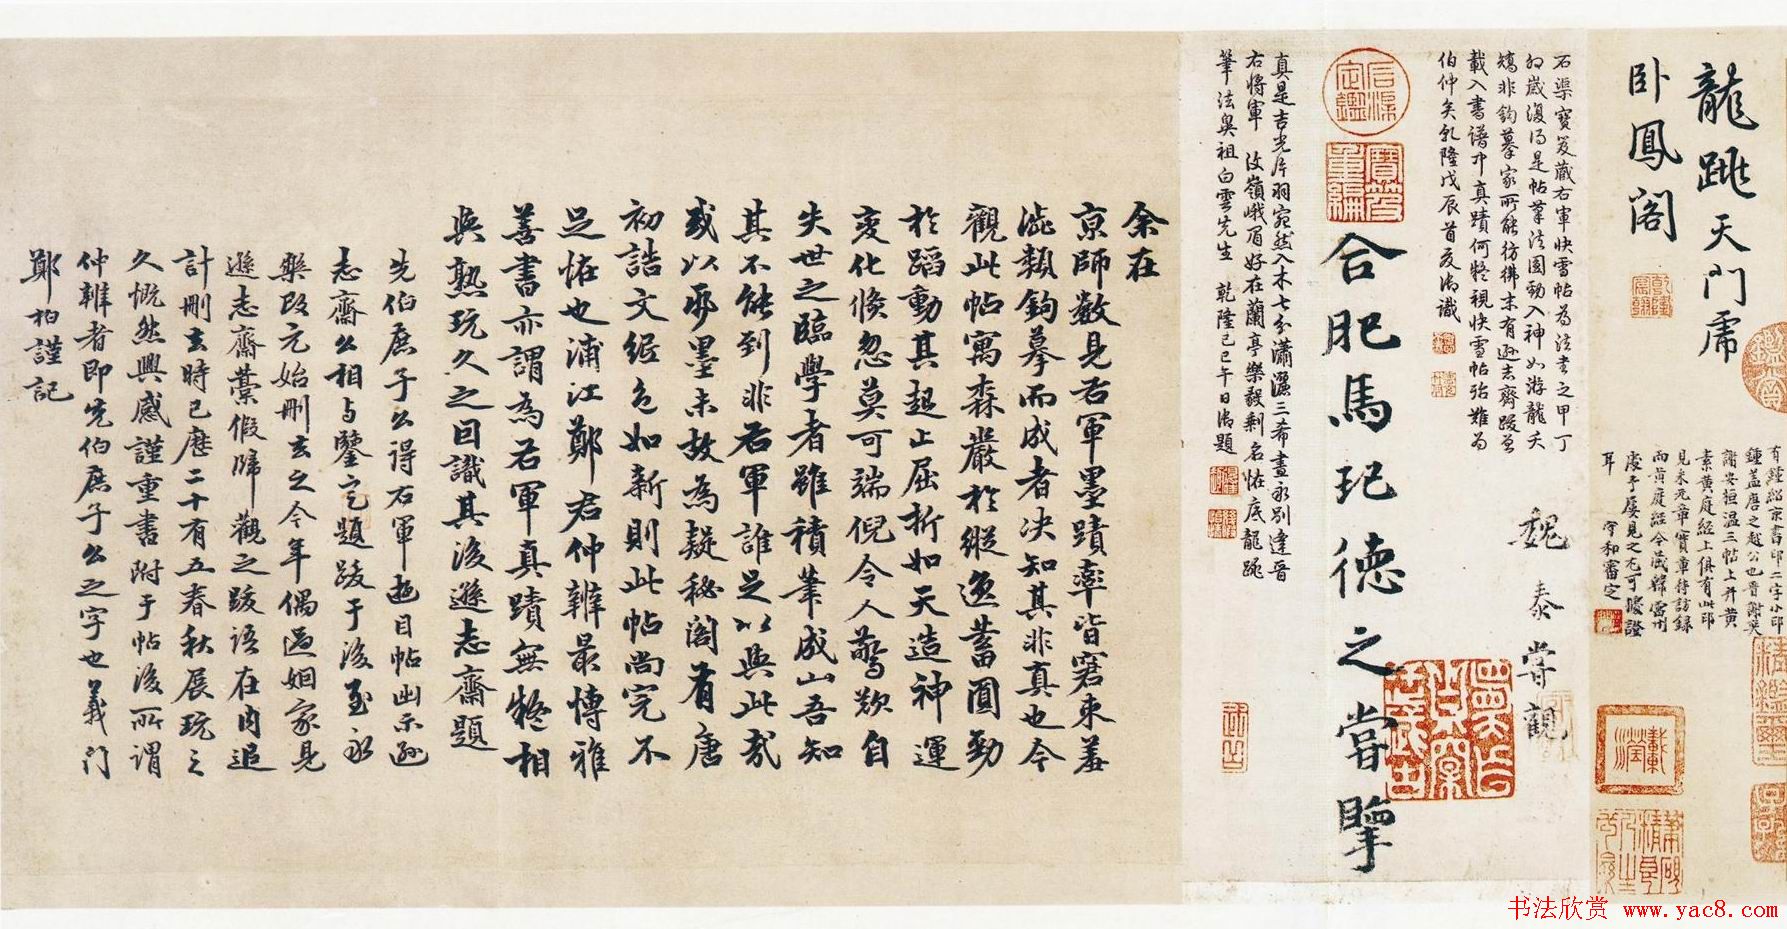 龍跳天門虎
卧鳳閣
有鍾紹京書印二字小印
鍾蓋唐之越公也晉謝奕
謝安桓温三帖上并黄
素黄庭經上俱有此印
見米元章寶章待訪録
而黄庭經今藏韓宗伯
處予屢見之尤可騐證
耳 守和審定
石渠寶笈藏右軍快雪帖為法書之甲丁
卯歲復得是帖筆法圓勁入神如游龍天
矯非鉤摹家所能彷彿末有遜志齋跋曾
載入書譜中真蹟何疑視快雪帖殆難為
伯仲矣乾隆戊辰首夏御識
魏泰嘗觀
合肥馬玘德之嘗觀
真是吉光片羽宛然入木七分瀟灑三希晝永別逢晉
右將軍 汶嶺峨眉好在蘭亭樂毅剩名恠底龍跳
筆法臭祖白雲先生 乾隆己巳午日御題
余在
京師數見右軍墨蹟率皆窘束羞
澁類鉤摹而成者決知其非真也今
觀此帖寓森嚴於縱逸蓄圓勁
於蹈動其起止屈折如天造神運
變化倏忽莫可端倪令人驚歎自
失世之臨學者雖積筆成山吾知
其不能到非右軍誰足以與此哉
或以爭墨未故為疑秘閣有唐
初誥文紙色如新則此帖尚完不
足恠也浦江鄭君仲辨最博雅
善書亦謂為右軍真蹟無疑相
與熟玩久之因識其後遜志齋題
先伯庶子公得右軍遊目帖出示遜
志齋公相与鑒定題跋于後至永
樂改元始刪去之今年偶過姻家見
遜志齋藁假歸觀之跋語在内追
計刪去時已歷二十有五春秋展玩之
久慨然興感謹重書附于帖後所謂
仲辨者即先伯庶子公之字也義門
鄭柏謹記
書法欣赏 www.yac8.com